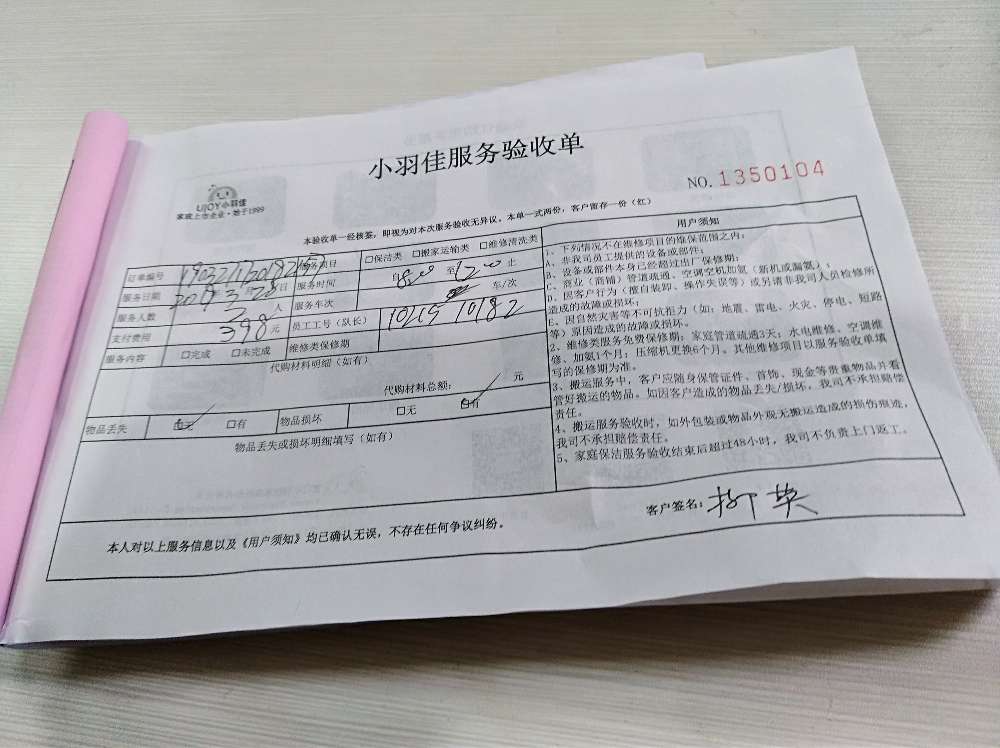 小羽佳服务验收单
UJOY小羽佳
家政上市企业·始于1999
NO. 1350104
本验收单一经核签，即视为对本次服务验收无异议。本单一式两份，客户留存一份（红）
订单编号 服务项目 □保洁类 □搬家运输类 □维修清洗类
服务日期 2019 3 28日 服务时间 自8:00 至12:00 止
服务人数 2 人 服务车次 车/次
支付费用 398 元 员工工号（队长） 10215 10182
服务内容 □完成 □未完成 维修类保修期
代购材料明细（如有）
代购材料总额： 元
物品丢失 □无 □有 物品损坏 □无 □有
物品丢失或损坏明细填写（如有）
用户须知
1、下列情况不在维修项目的维保范围之内：
A、非我司员工提供的设备或部件；
B、设备或部件本身已经超过出厂保修期；
C、商业（商铺）管道疏通、空调空机加氨（新机或漏氨）；
D、因客户行为（擅自装卸、操作失误等）或另请非我司人员检修所
造成的故障或损坏；
E、因自然灾害等不可抗拒力（如：地震、雷电、火灾、停电、短路
等）原因造成的故障或损坏。
2、维修类服务免费保修期：家庭管道疏通3天；水电维修、空调维
修、加氨1个月；压缩机更换6个月。其他维修项目以服务验收单填
写的保修期为准。
3、搬运服务中，客户应随身保管证件、首饰、现金等贵重物品并看
管好搬运的物品。如因客户造成的物品丢失/损坏，我司不承担赔偿
责任。
4、搬运服务验收时，如外包装或物品外观无搬运造成的损伤痕迹，
我司不承担赔偿责任。
5、家庭保洁服务验收结束后超过48小时，我司不负责上门返工。
本人对以上服务信息以及《用户须知》均已确认无误，不存在任何争议纠纷。
客户签名：柳英